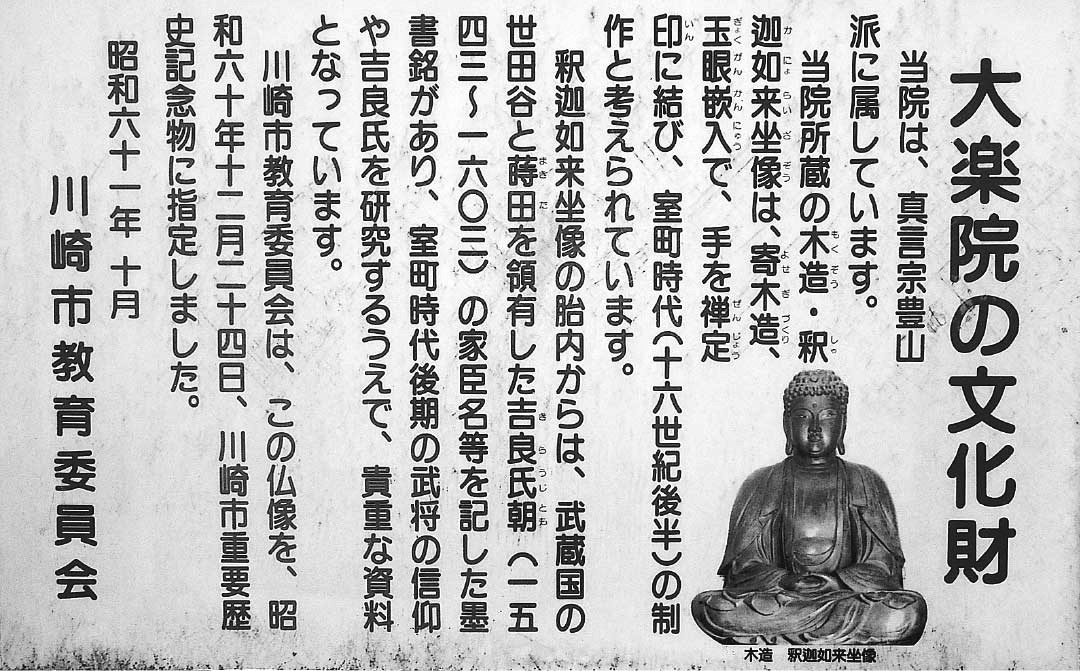 大楽院の文化財
当院は、真言宗豊山
派に属しています。
当院所蔵の木造・釈
迦如来坐像は、寄木造、
玉眼嵌入で、手を禅定
印に結び、室町時代(十六世紀後半)の制
作と考えられています。
釈迦如来坐像の胎内からは、武蔵国の
世田谷と蒔田を領有した吉良氏朝(一五
四三〜一六〇三)の家臣名等を記した墨
書銘があり、室町時代後期の武将の信仰
や吉良氏を研究するうえで、貴重な資料
となっています。
川崎市教育委員会は、この仏像を、昭
和六十年十二月二十四日、川崎市重要歴
史記念物に指定しました。
昭和六十一年十月
川崎市教育委員会
木造 釈迦如来坐像